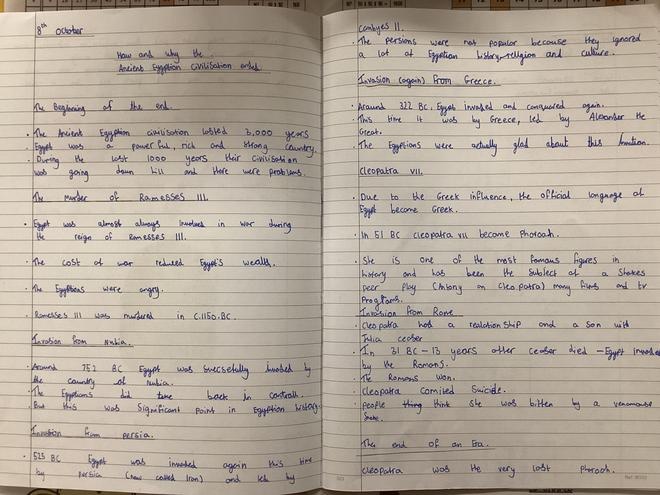 8th October
How and why the
Ancient Egyption civilisation ended
The Beginning of the end.
• The Ancient Egyption civilisation lasted 3,000 years
• Egypt was a powerful, rich and strong country.
• During the last 1000 years their civilisation
was going down hill and there were problems.
The murder of Ramesses III.
• Egypt was almost always involved in war during
the reign of Ramesses III.
• The cost of war reduced Egypt's wealth.
• The Egyptions were angry.
• Ramesses III was murdered in C.1150.BC.
Invasion from Nubia.
• Around 752 BC Egypt was succsefully invaded by
the country of Nubia.
• The Egyptions did take back in controll.
• But this was significant point in Egyption history.
Invasion from persia.
• 525 BC Egypt was invaded again this time
by persia (now called Iran) and led by
cambyes II.
• The persions were not popular because they ignored
a lot of Egyption history, religion and culture.
Invasion (again) from Greece.
• Around 322 BC, Egypt invaded and conquered again.
• This time it was by Greece, led by Alexander the
Great.
• The Egyptions were actually glad about this
Cleopatra VII.
• Due to the Greek influence, the official language of
Egypt become Greek.
• In 51 BC cleopatra VII become Pharoah.
• She is one of the most famous figures in
history and has been the subject of a Shakes
peer play (Antony an Cleopatra) many films and tv
Programs.
Invasion from Rome
• Cleopatra had a realotionship and a son with
Julia ceaser
• In 31 BC - 13 years after ceaser died - Egypt invaded
by the Romans.
• The Romans won.
• Cleopatra comited suicide.
• people thing think she was bitten by a venomouse
Snake.
The end of an Era.
• Cleopatra was the very last pharoah.